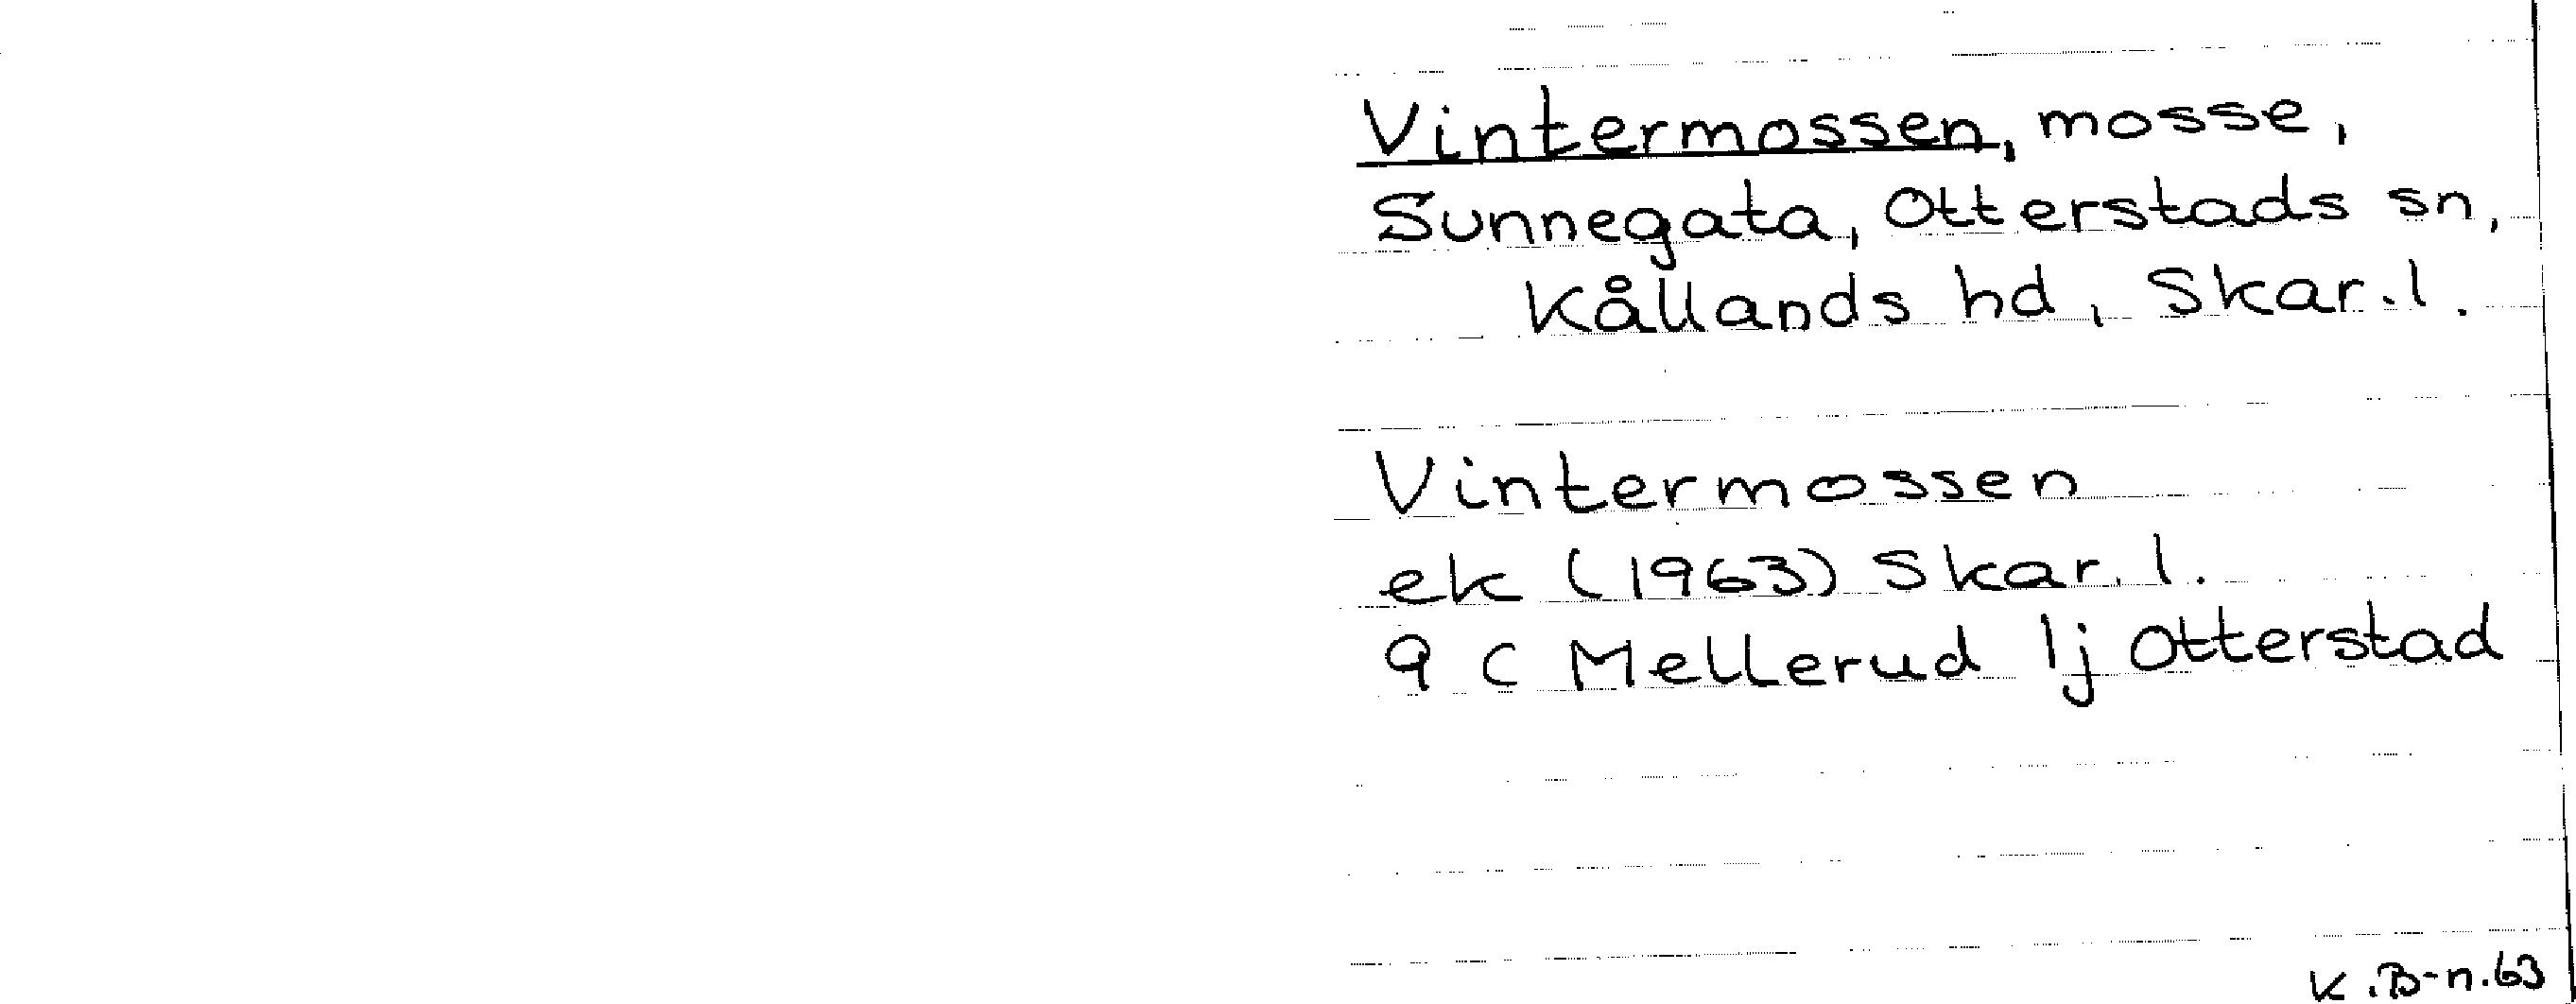 Vintermossen, mosse,
Sunnegata, Otterstads sn,
Kållands hd, Skar.l.
Vintermossen
ek (1963) Skar.l.
9 C Mellerud 1j Otterstad
K.B-n.63